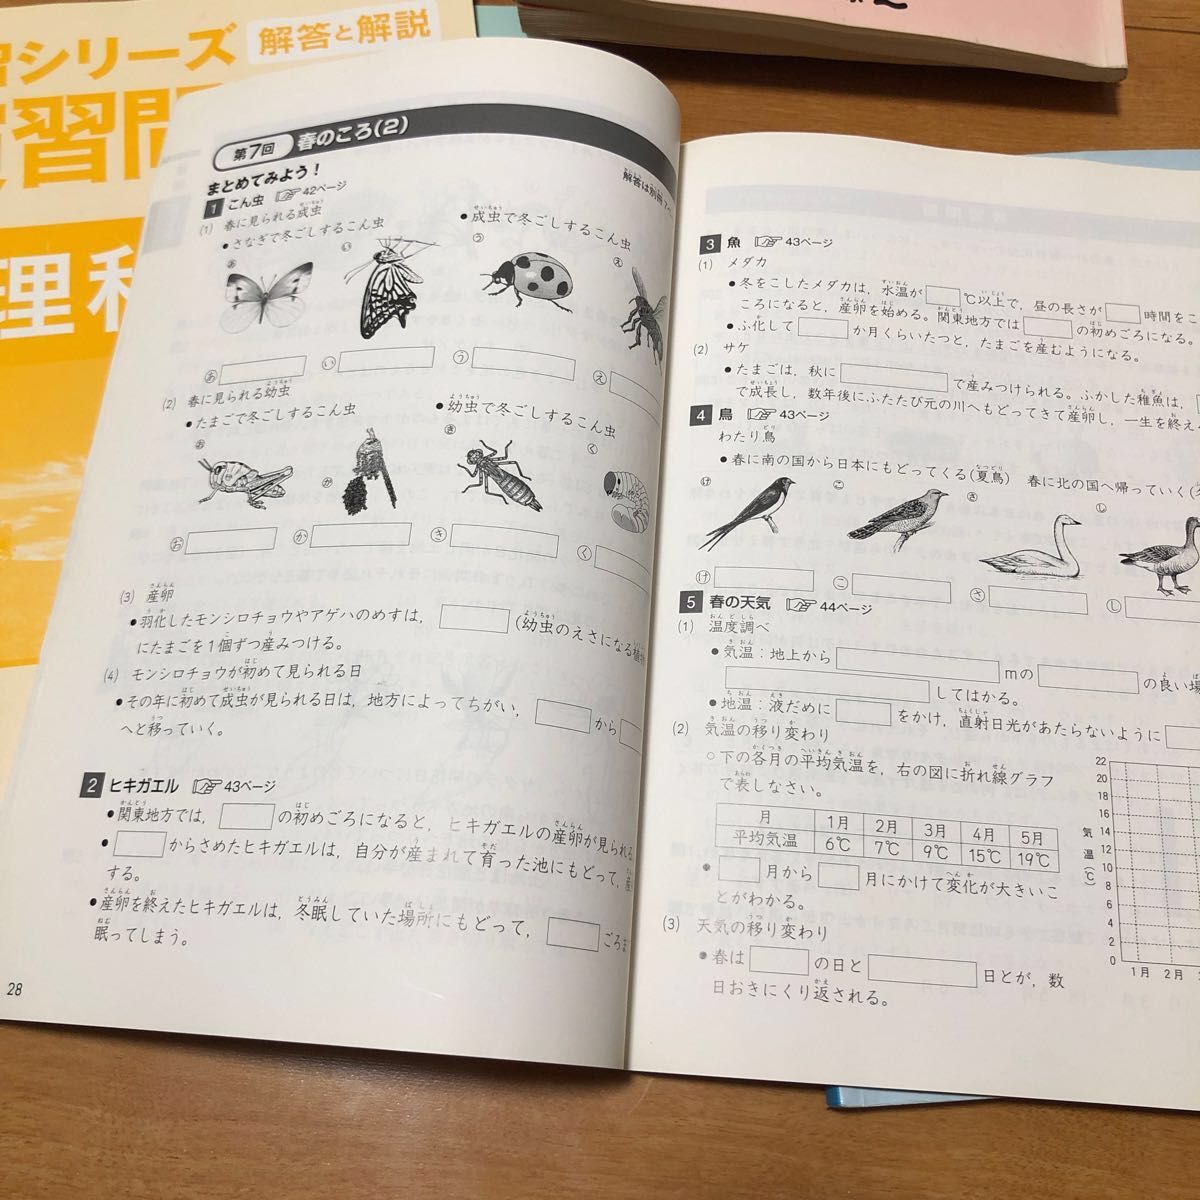 習シリーズ
解答と解説
習問
理科
第7回 春のころ(2)
解答は別冊
まとめてみよう!
1 こん虫 42ページ
(1) 春に見られる成虫
●さなぎで冬ごしするこん虫
●成虫で冬ごしするこん虫
あ い う え
あ い う え
(2) 春に見られる幼虫
●たまごで冬ごしするこん虫
●幼虫で冬ごしするこん虫
お か き く
お か き く
(3) 産卵
●羽化したモンシロチョウやアゲハのめすは, (幼虫のえさになる植物
にたまごを1個ずつ産みつける。
(4) モンシロチョウが初めて見られる日
●その年に初めて成虫が見られる日は, 地方によってちがい, から
へと移っていく。
2 ヒキガエル 43ページ
●関東地方では, の初めごろになると, ヒキガエルの産卵が見られる
● からさめたヒキガエルは, 自分が産まれて育った池にもどって, 産
する。
●産卵を終えたヒキガエルは, 冬眠していた場所にもどって, ごろ
眠ってしまう。
28
3 魚 43ページ
(1) メダカ
●冬をこしたメダカは, 水温が ℃以上で, 昼の長さが 時間をこ
ころになると, 産卵を始める。関東地方では の初めごろになる。
●ふ化して か月くらいたつと, たまごを産むようになる。
(2) サケ
●たまごは, 秋に で産みつけられる。ふかした稚魚は,
で成長し, 数年後にふたたび元の川へもどってきて産卵し, 一生を終え
4 鳥 43ページ
わたり鳥
●春に南の国から日本にもどってくる(夏鳥) 春に北の国へ帰っていく(
け こ さ し
け こ さ し
5 春の天気 44ページ
(1) 温度調べ
●気温:地上から mの の良い場
してはかる。
●地温:液だめに をかけ, 直射日光があたらないように
(2) 気温の移り変わり
○下の各月の平均気温を, 右の図に折れ線グラフ
で表しなさい。
月 1月 2月 3月 4月 5月
平均気温 6℃ 7℃ 9℃ 15℃ 19℃
● 月から 月にかけて変化が大きいこ
とがわかる。
(3) 天気の移り変わり
●春は の日と 日とが, 数
日おきにくり返される。
気温(℃)
22
20
18
16
14
12
10
8
6
4
2
0
1月 2月